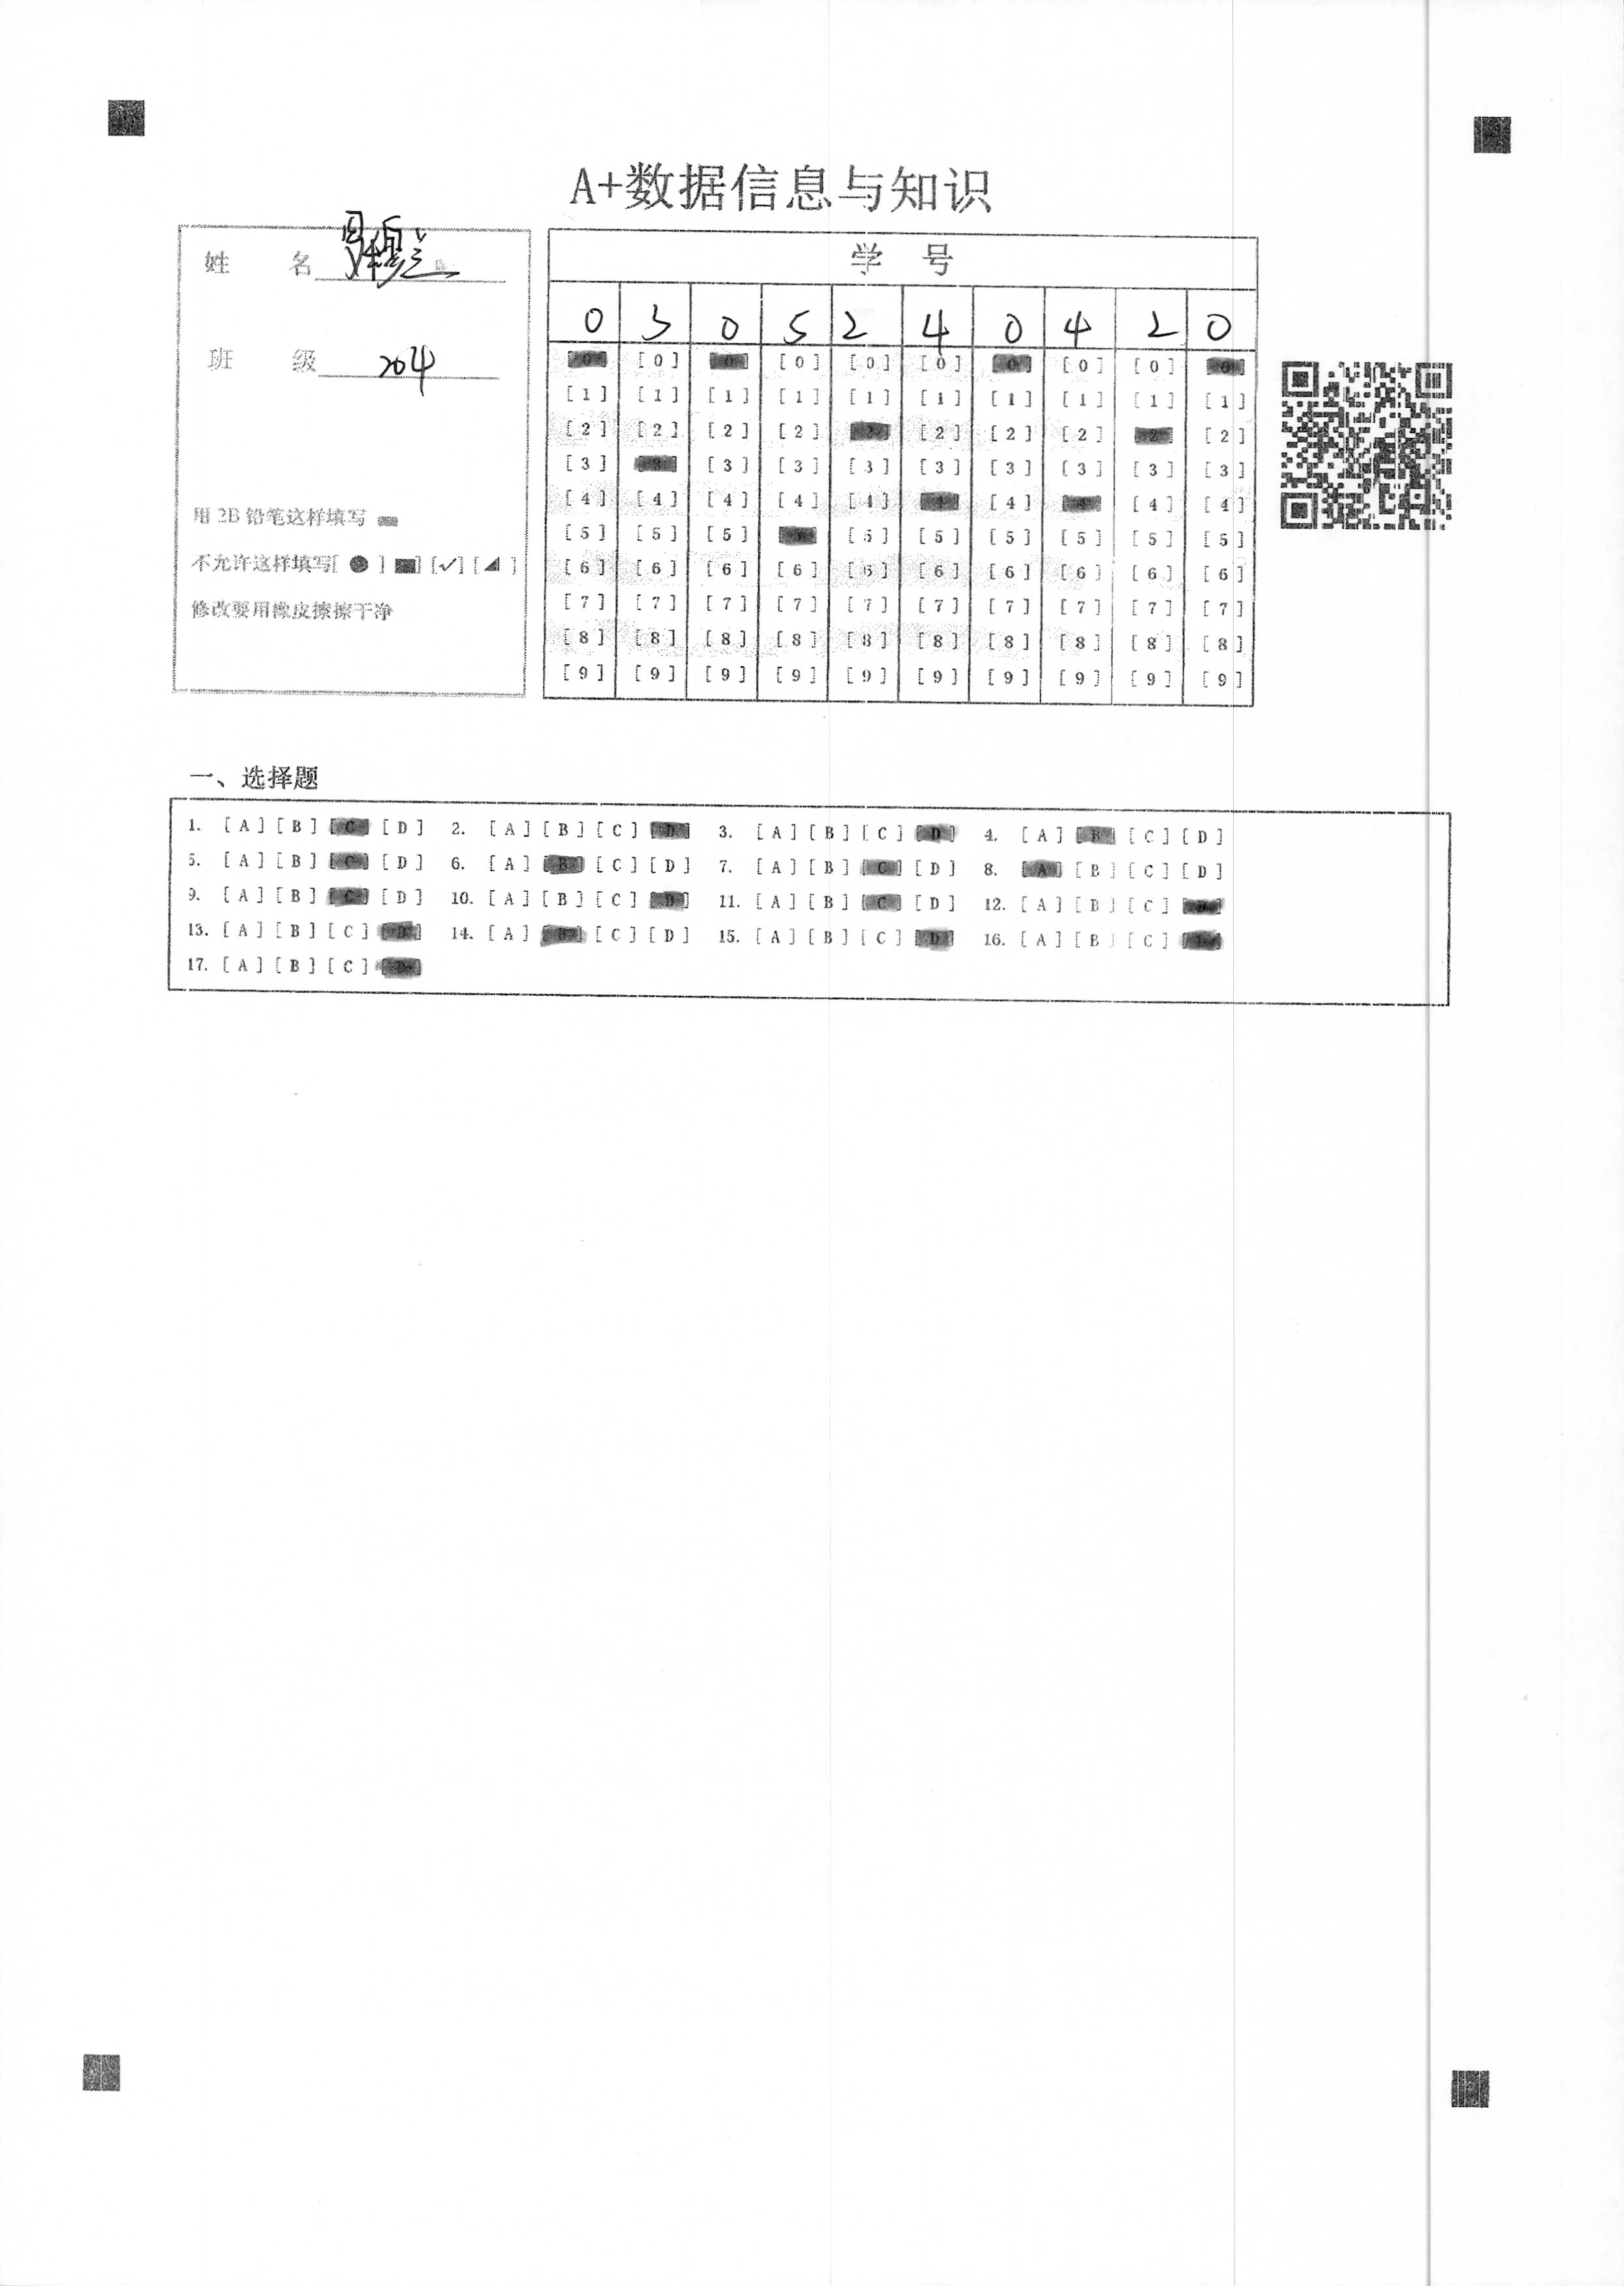 A+数据信息与知识
姓 名
班 级 204
用 2B 铅笔这样填写
不允许这样填写[ ● ] [■] [✓] [◢ ]
修改要用橡皮擦擦干净
学 号
0 3 0 5 2 4 0 4 2 0
[0] [0] [0] [0] [0] [0] [0] [0] [0] [0]
[1] [1] [1] [1] [1] [1] [1] [1] [1] [1]
[2] [2] [2] [2] [2] [2] [2] [2] [2] [2]
[3] [3] [3] [3] [3] [3] [3] [3] [3] [3]
[4] [4] [4] [4] [4] [4] [4] [4] [4] [4]
[5] [5] [5] [5] [5] [5] [5] [5] [5] [5]
[6] [6] [6] [6] [6] [6] [6] [6] [6] [6]
[7] [7] [7] [7] [7] [7] [7] [7] [7] [7]
[8] [8] [8] [8] [8] [8] [8] [8] [8] [8]
[9] [9] [9] [9] [9] [9] [9] [9] [9] [9]
一、选择题
1. [A] [B] [C] [D] 2. [A] [B] [C] [D] 3. [A] [B] [C] [D] 4. [A] [B] [C] [D]
5. [A] [B] [C] [D] 6. [A] [B] [C] [D] 7. [A] [B] [C] [D] 8. [A] [B] [C] [D]
9. [A] [B] [C] [D] 10. [A] [B] [C] [D] 11. [A] [B] [C] [D] 12. [A] [B] [C] [D]
13. [A] [B] [C] [D] 14. [A] [B] [C] [D] 15. [A] [B] [C] [D] 16. [A] [B] [C] [D]
17. [A] [B] [C] [D]